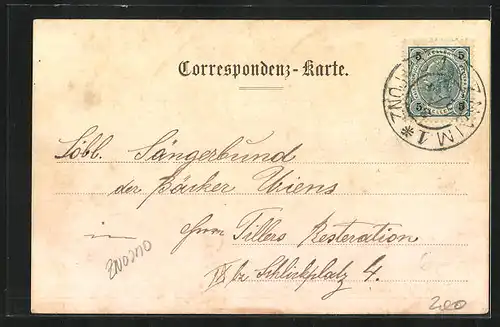 Correspondenz-Karte.
5 5
5 5
ZNAIM 1 *
Löbl. Sängerbund
der Bäcker Wiens
in
Herrn Tillers Restoration
IX bz. Schlickplatz 4.
ZNOJMO
200